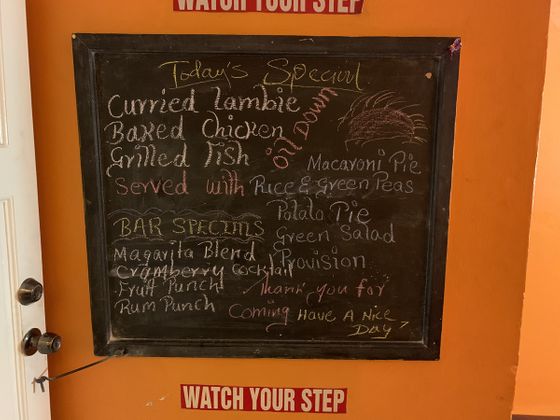 WATCH YOUR STEP
Today's Special
Curried Lambie
Baked Chicken
Grilled Fish
Oil Down
Served with Rice & Green Peas
Macaroni Pie
Potato Pie
Green Salad
Provision
BAR SPECIALS
Magarita Blend
Cramberry Cocktail
Fruit Punch
Rum Punch
Thank you for
Coming Have A Nice
Day
WATCH YOUR STEP